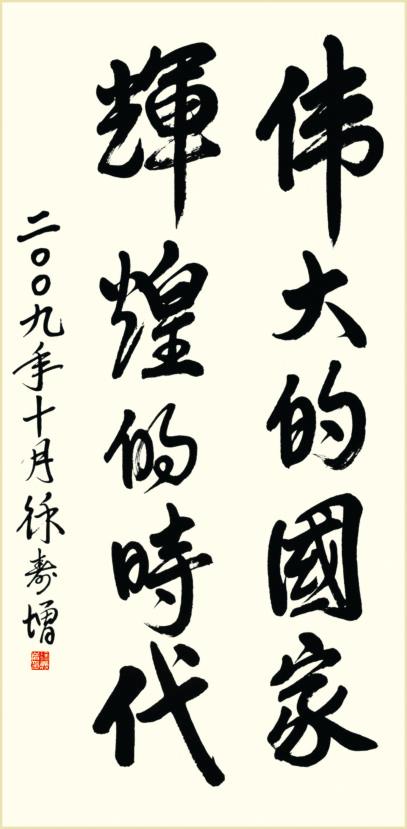 伟大的國家
輝煌的時代
二〇〇九年十月徐寿增